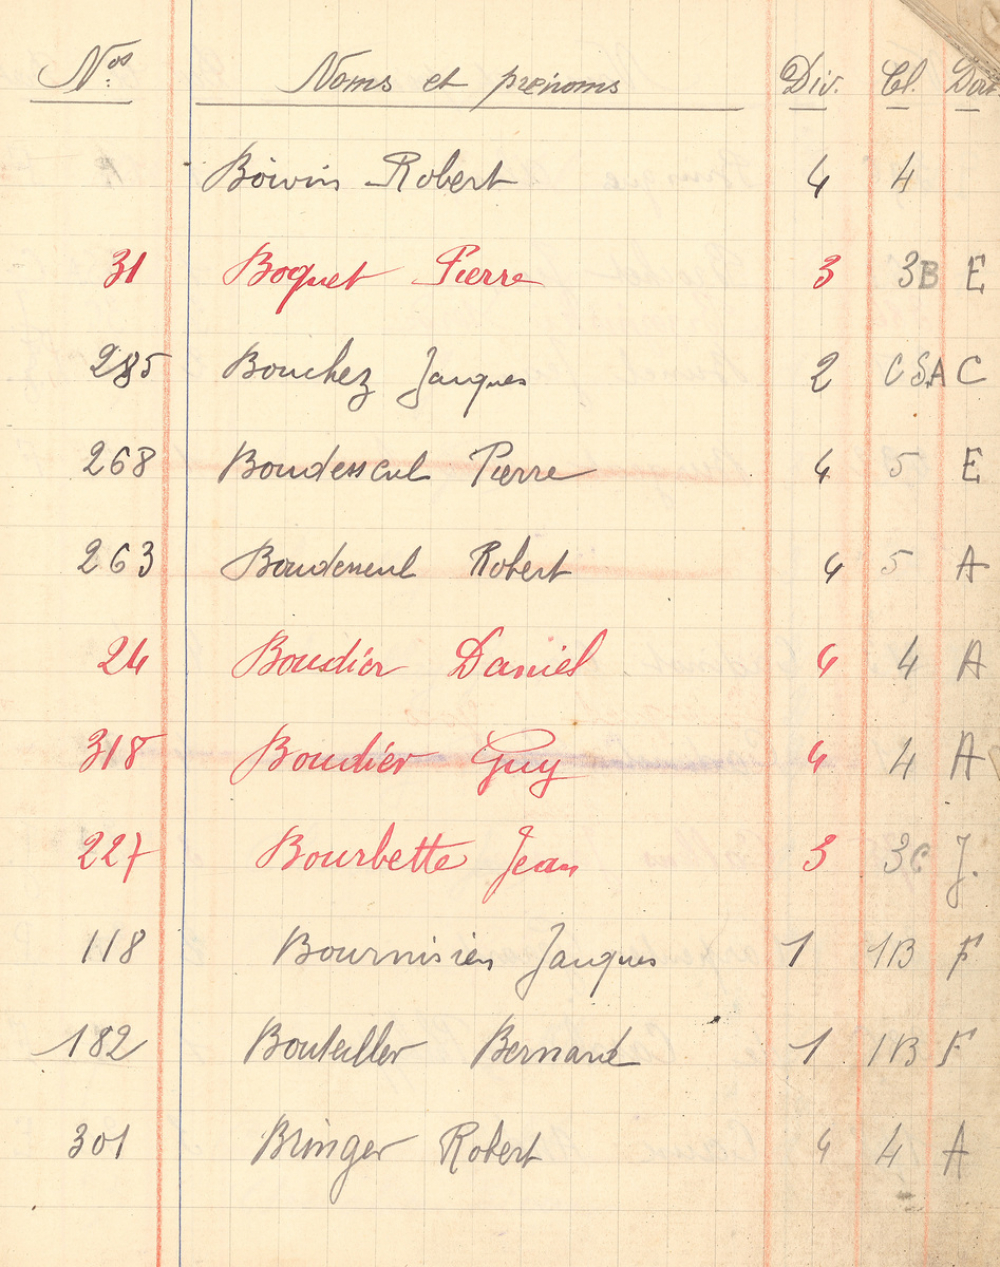 Nos Noms et prénoms Div. Cl. Dort
Boivin Robert 4 4
31 Boquet Pierre 3 3B E
285 Bouchez Jacques 2 CSA C
268 Boudesseul Pierre 4 5 E
263 Boudesseul Robert 4 5 A
24 Boudier Daniel 4 4 A
318 Boudier Guy 4 4 A
227 Bourbette Jean 3 3C J.
118 Bournisien Jacques 1 1B F
182 Bouteiller Bernard 1 1B F
301 Bringer Robert 4 4 A